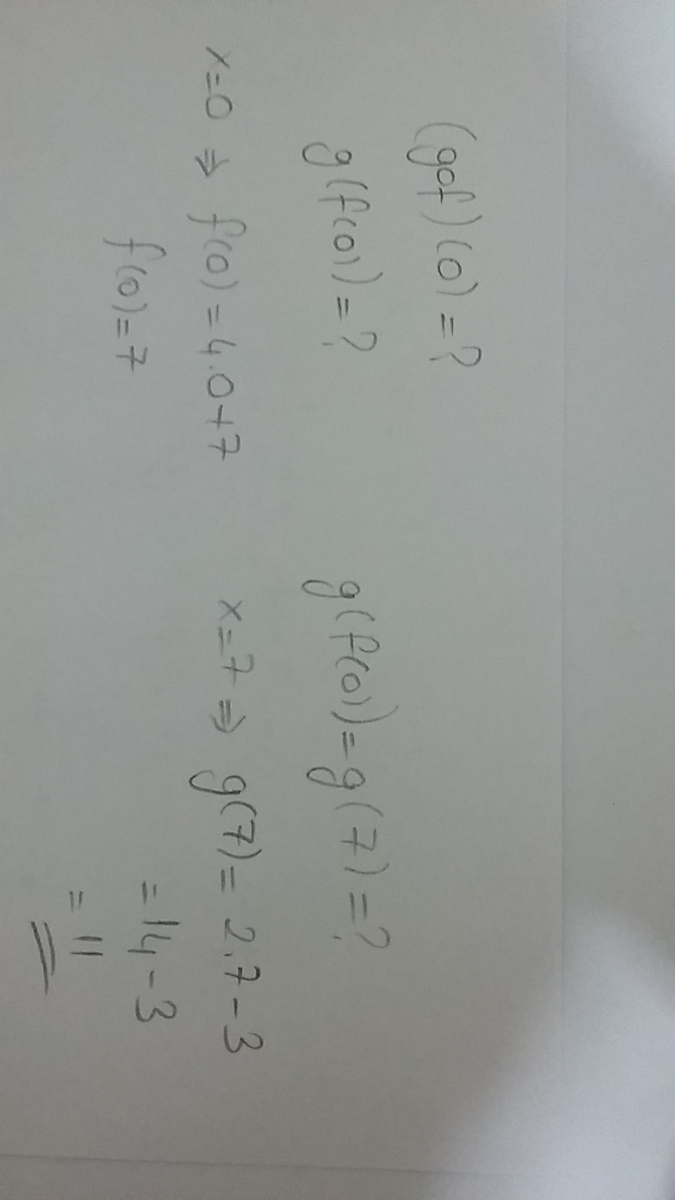 (gof)(0)=?
g(f(0))=?
x=0 ⇒ f(0)=4.0+7
f(0)=7
g(f(0))=g(7)=?
x=7 ⇒ g(7)=2.7-3
=14-3
=11